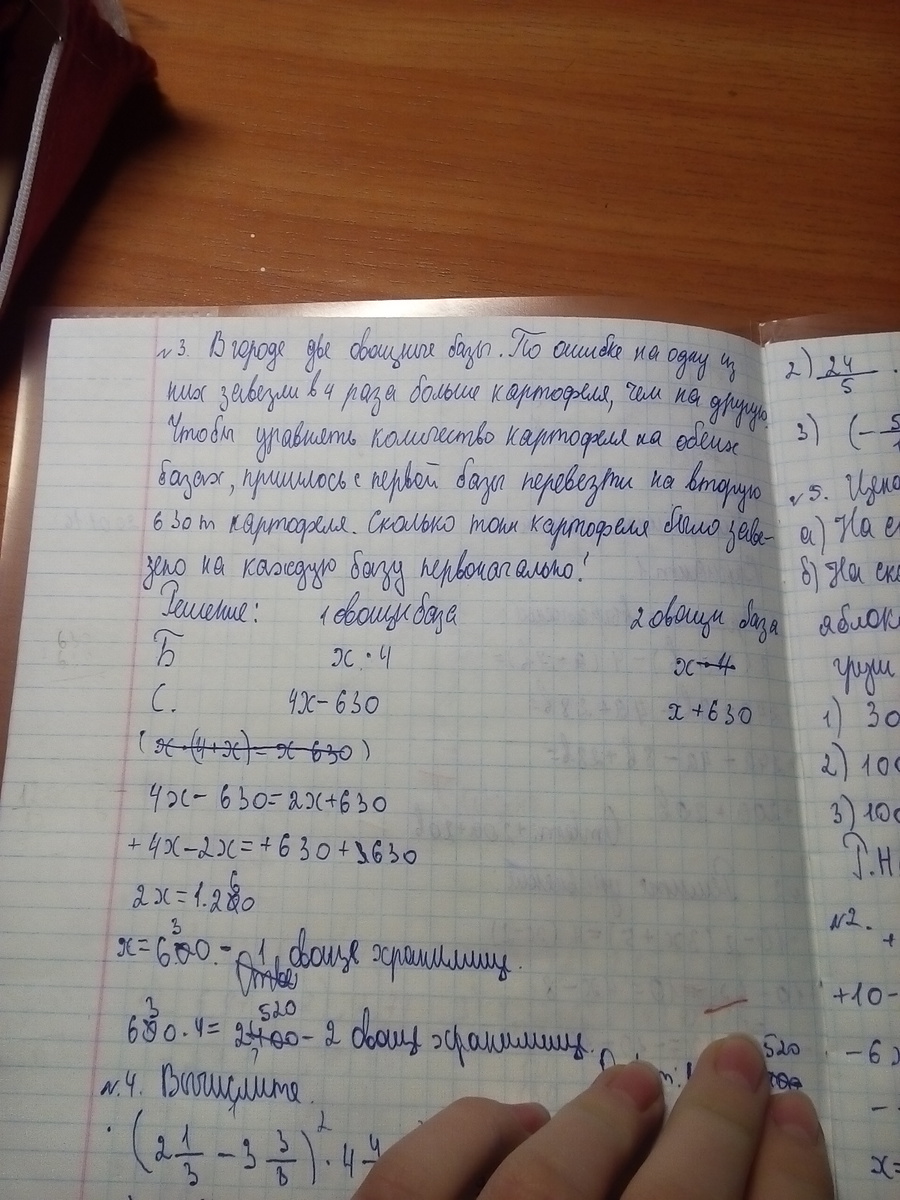 №3. В городе две овощные базы. По ошибке на одну из
них завезли в 4 раза больше картофеля, чем на другую.
Чтобы уравнять количество картофеля на обеих
базах, пришлось с первой базы перевезти на вторую
630т картофеля. Сколько тонн картофеля было заве-
зено на каждую базу первоначально?
Решение: 1 овощн база 2 овощн база
Б x · 4 x · 4
С. 4x - 630 x + 630
(x · (4+x) = x 630)
4x - 630 = 2x + 630
+ 4x - 2x = + 630 + 630
2x = 1.260
x = 630. - 1 овоще хранилищ.
630 · 4 = 2520 - 2 овоще хранилищ.
520
№4. Вычислите.
(2 1/3 - 3 3/8)² · 4 4
2) 24/5 ·
3) (- 5
№5. Цена
а) На с
б) На ск
яблок
груш
1) 30
2) 100
3) 100
Р.Н
№2.
+
+10 -
- 6x
-
x =